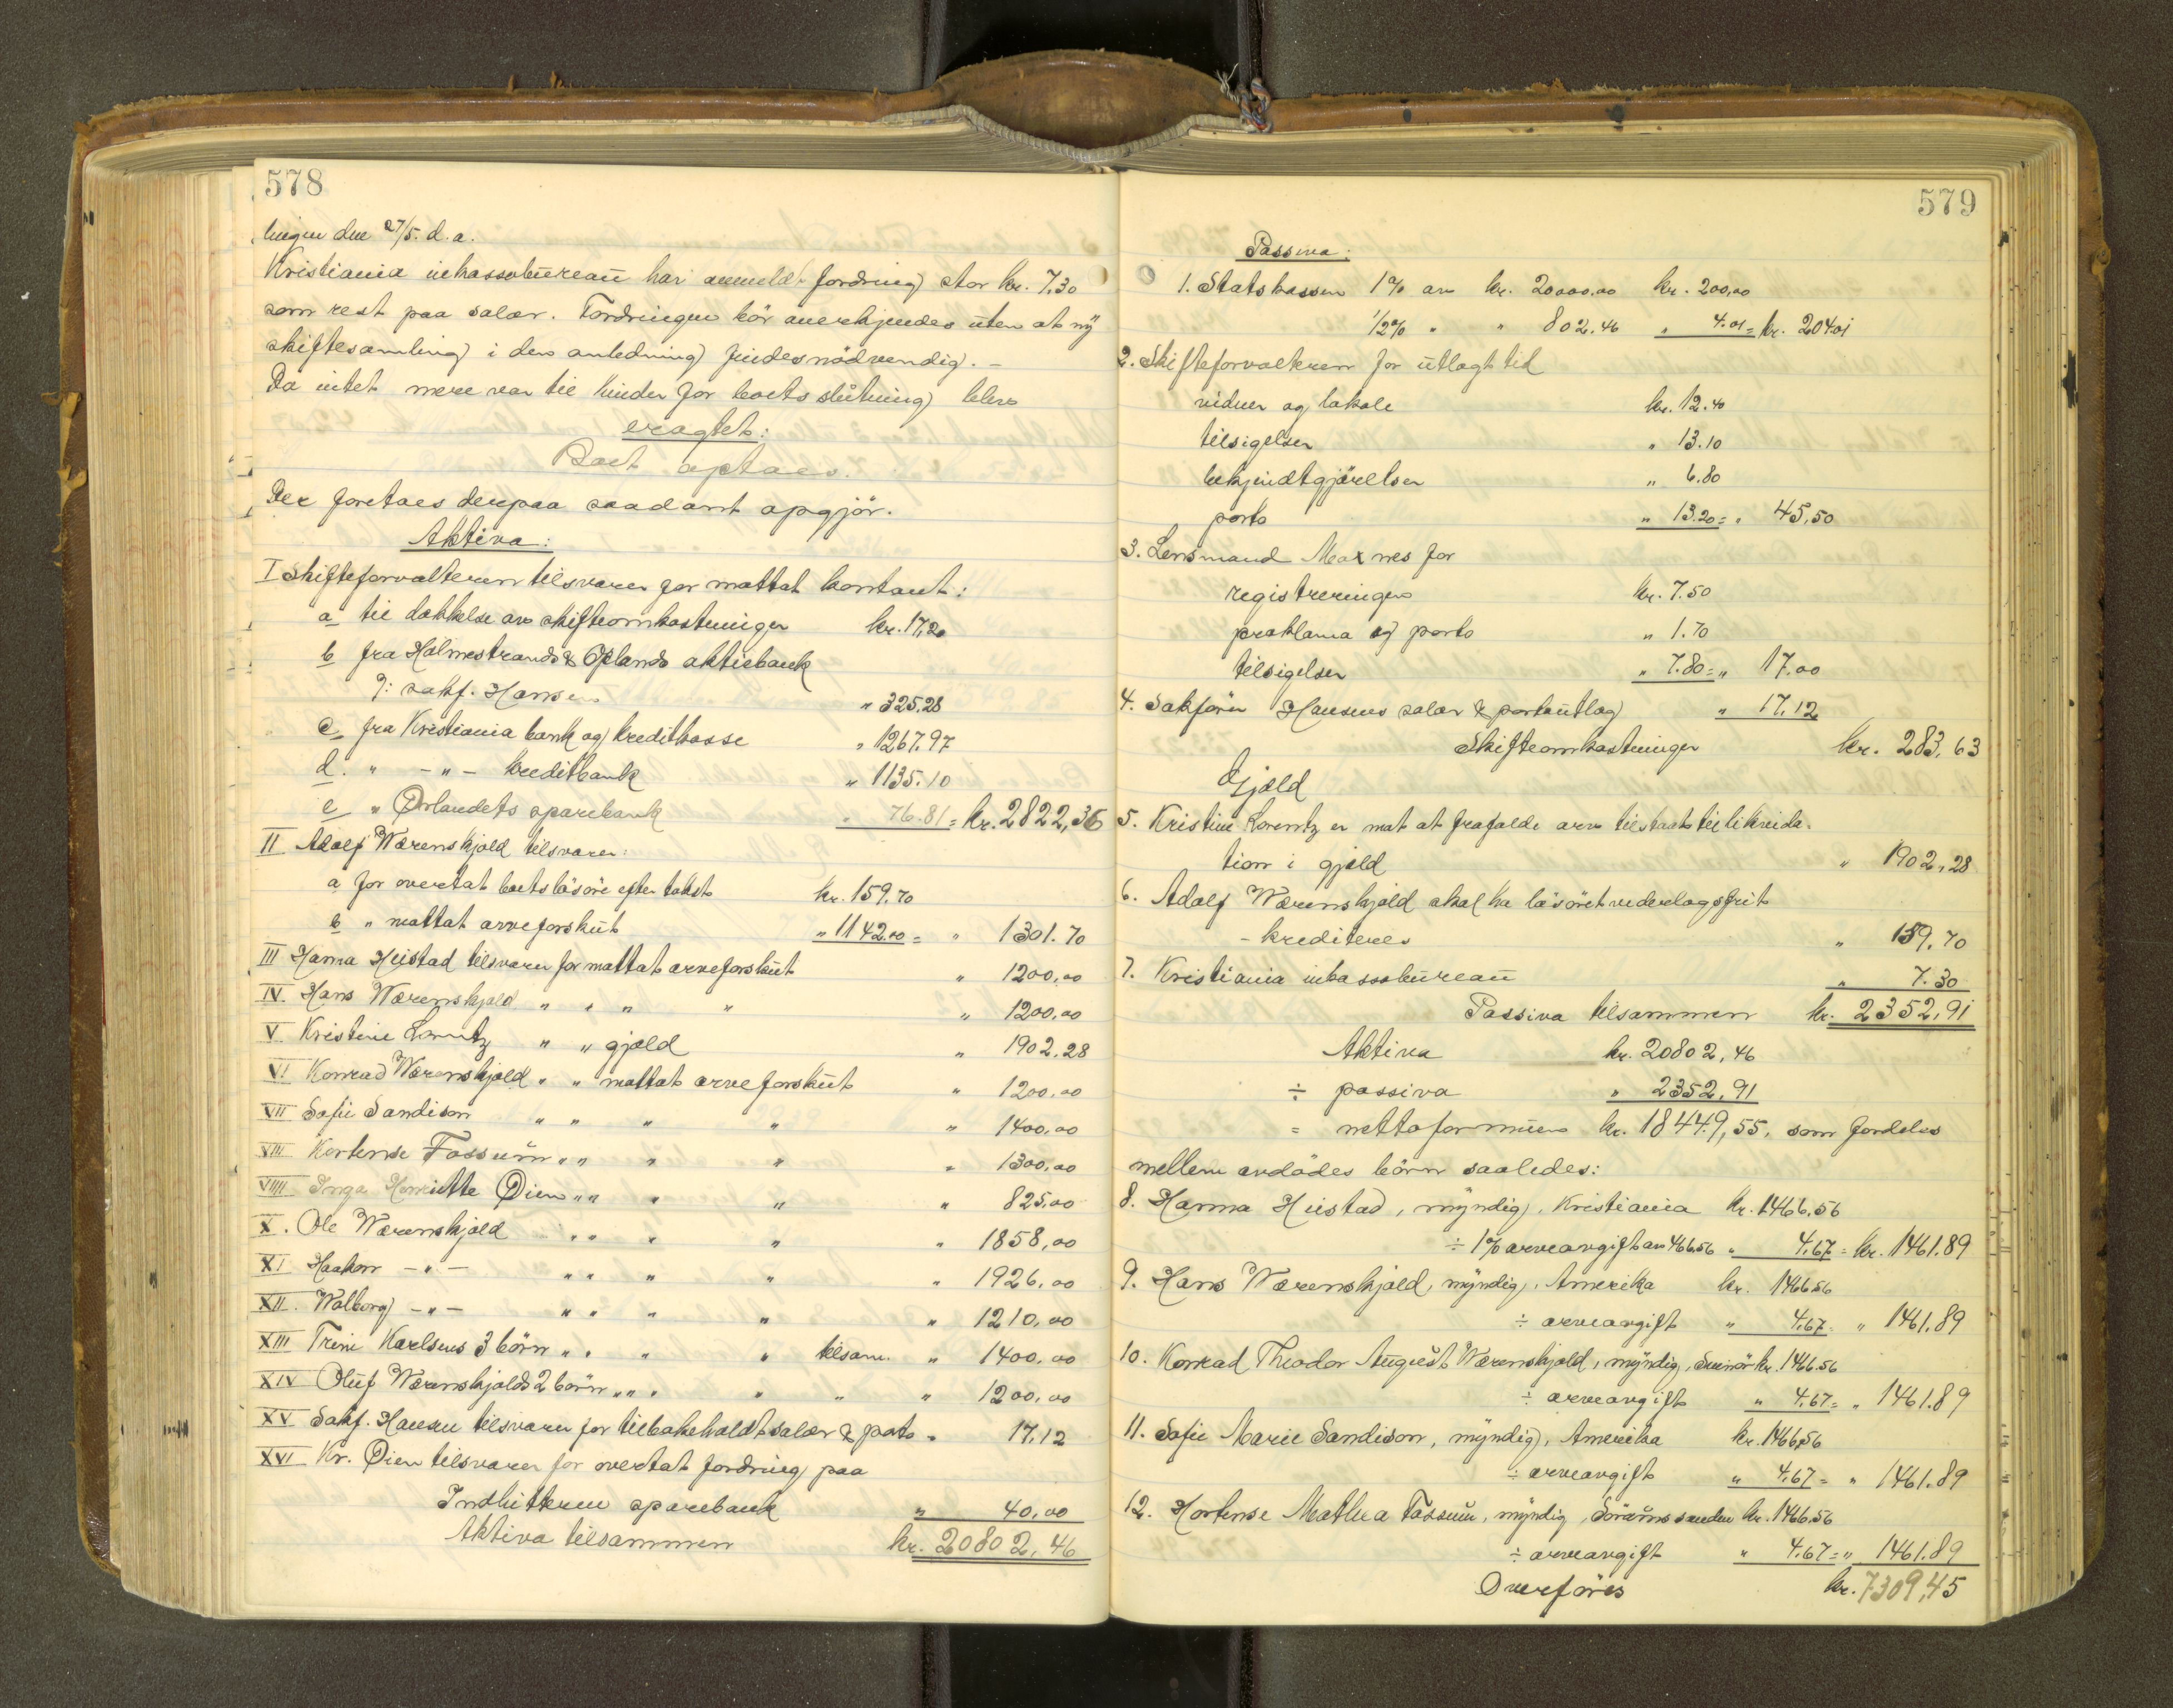 578
lingen den 27/5. d.a.
Kristiania inkassobureau har anmeldt fordring stor kr. 7.30
som rest paa salær. Fordringen bör anerkjendes uten at ny
skiftesamling i den anledning findes nödvendig. —
Da intet mere var til hinder for boets slutning blev
eragtet:
Boet optaes.
Der foretaes derpaa saadant opgjör.
Aktiva:
I Skifteforvalteren tilsvarer for mottat kontant:
a til dækkelse av skifteomkostninger kr. 17,20
b fra Holmestrands & Oplands aktiebank
ɔ: sakf. Hansen " 325.28
c fra Kristiania bank og kreditkasse " 1267.97
d. " -"- kreditbank " 1135.10
e " Ørlandets sparebank " 76.81 = kr. 2822,36
II Adolf Wærenskjold tilsvarer:
a for overtat boets lösöre efter takst kr. 159.70
b " mottat arveforskut " 1142.00 = " 1301.70
III Hanna Hustad tilsvarer for mottat arveforskut " 1200,00
IV. Hans Wærenskjold " " " " " 1200,00
V Kristine Lorentz " " gjæld " 1902.28
VI Konrad Wærenskjold " " mottat arveforskut " 1200,00
VII Sofie Sandison " " " " " 1400,00
VIII Hortense Fossum " " " " " 1300,00
VIIII Inga Henriette Øien " " " " " 825,00
X. Ole Wærenskjold " " " " " 1858,00
XI Haakon -"- " " " " " 1926,00
XII. Walborg -"- " " " " " 1210,00
XIII Trine Karlsens 3 börn " " " " tilsam. " 1400,00
XIV Oluf Wærenskjolds 2 börn " " " " " " 1200,00
XV Sakf. Hansen tilsvarer for tilbakeholdt salær & porto " 17,12
XVI Kr. Øien tilsvarer for overtat fordring paa
Indhitteren sparebank " 40,00
Aktiva tilsammen kr. 20802,46
579
Passiva:
1. Statskassen 1% av kr. 20000,00 kr. 200,00
1/2% " " 802.46 " 4.01 = kr. 204.01
2. Skifteforvalteren for utlagt til
vidner og lokale kr. 12.40
tilsigelser " 13.10
bekjendtgjörelser " 6.80
porto " 13.20 = " 45,50
3. Lensmand Moxnes for
registreringen kr. 7.50
proklama og porto " 1.70
tilsigelser " 7.80 = " 17.00
4. Sakförer Hansens salær & portoutlæg " 17.12
Skifteomkostninger kr. 283,63
Gjæld
5. Kristine Lorentz er mot at frafalde arv tilstaat tillikvida-
tion i gjæld " 1902,28
6. Adolf Wærenskjold skal ha lösöret vederlagsfrit
- krediteres " 159.70
7. Kristiania inkassobureau " 7.30
Passiva tilsammen kr. 2352,91
Aktiva kr. 20802,46
÷ passiva " 2352,91
= nettoformuen kr. 18449,55, som fordeles
mellem avdödes börn saaledes:
8. Hanna Hustad, myndig, Kristiania kr. 1466,56
÷ 1% arveavgift av 466.56 " 4.67 = kr. 1461.89
9. Hans Wærenskjold, myndig, Amerika kr. 1466.56
÷ arveavgift " 4.67 " 1461.89
10. Konrad Theodor August Wærenskjold, myndig, kr. 1466.56
÷ arveavgift " 4.67 = " 1461.89
11. Sofie Marie Sandison, myndig, Amerika kr. 1466,56
÷ arveavgift " 4.67 = " 1461.89
12. Hortense Mathea Fossum, myndig, Söraunssanden kr. 1466.56
÷ arveavgift " 4.67 = " 1461.89
Overföres kr. 7309,45